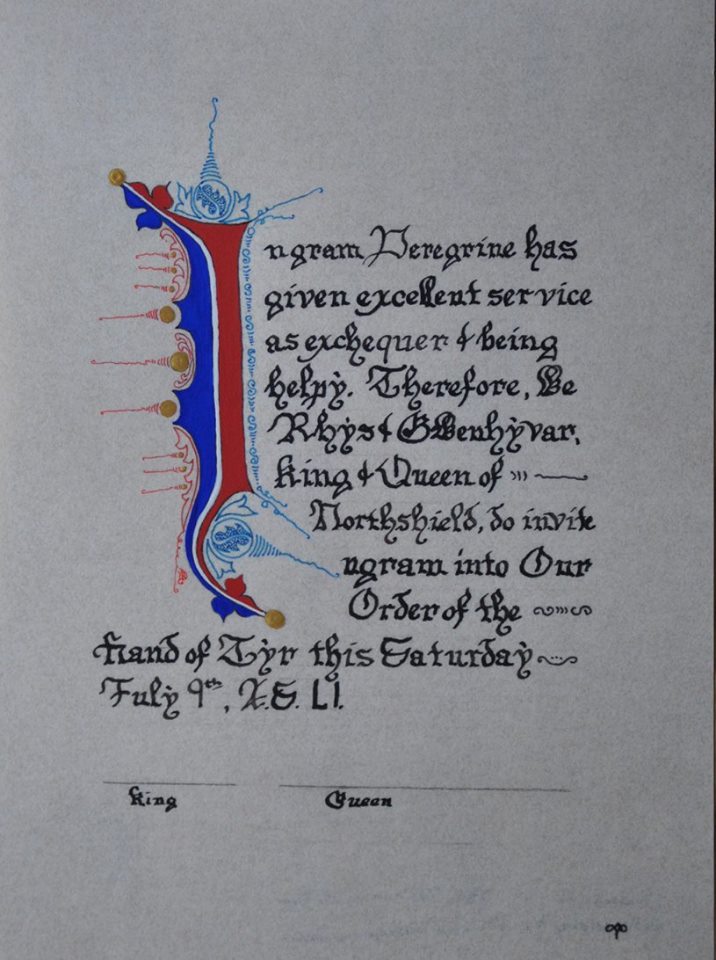 Ingram Peregrine has
given excellent service
as exchequer & being
helpy. Therefore, We
Rhys & Gwenhyvar,
King & Queen of
Northshield, do invite
Ingram into Our
Order of the
Hand of Tyr this Saturday
July 9th, A.S. LI.
King Queen